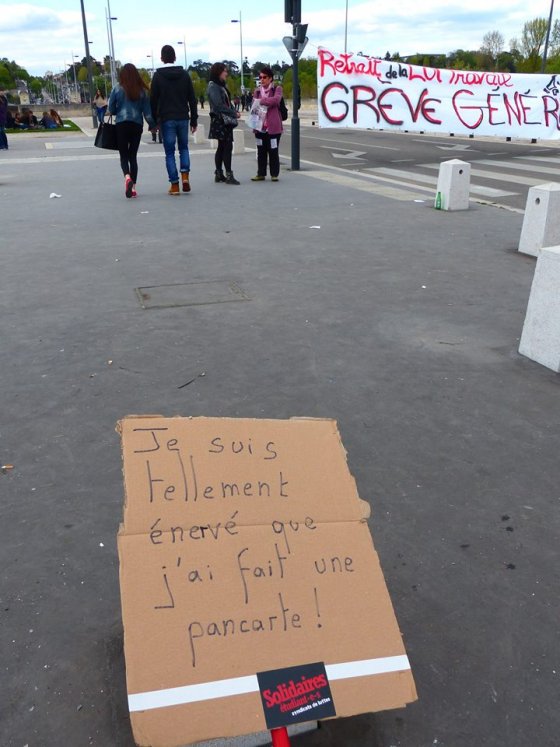 Retrait de la LOI Travail
GREVE GÉNÉR
Je suis
tellement
énervé que
j'ai fait une
pancarte !
Solidaires
étudiant-e-s
syndicats de luttes